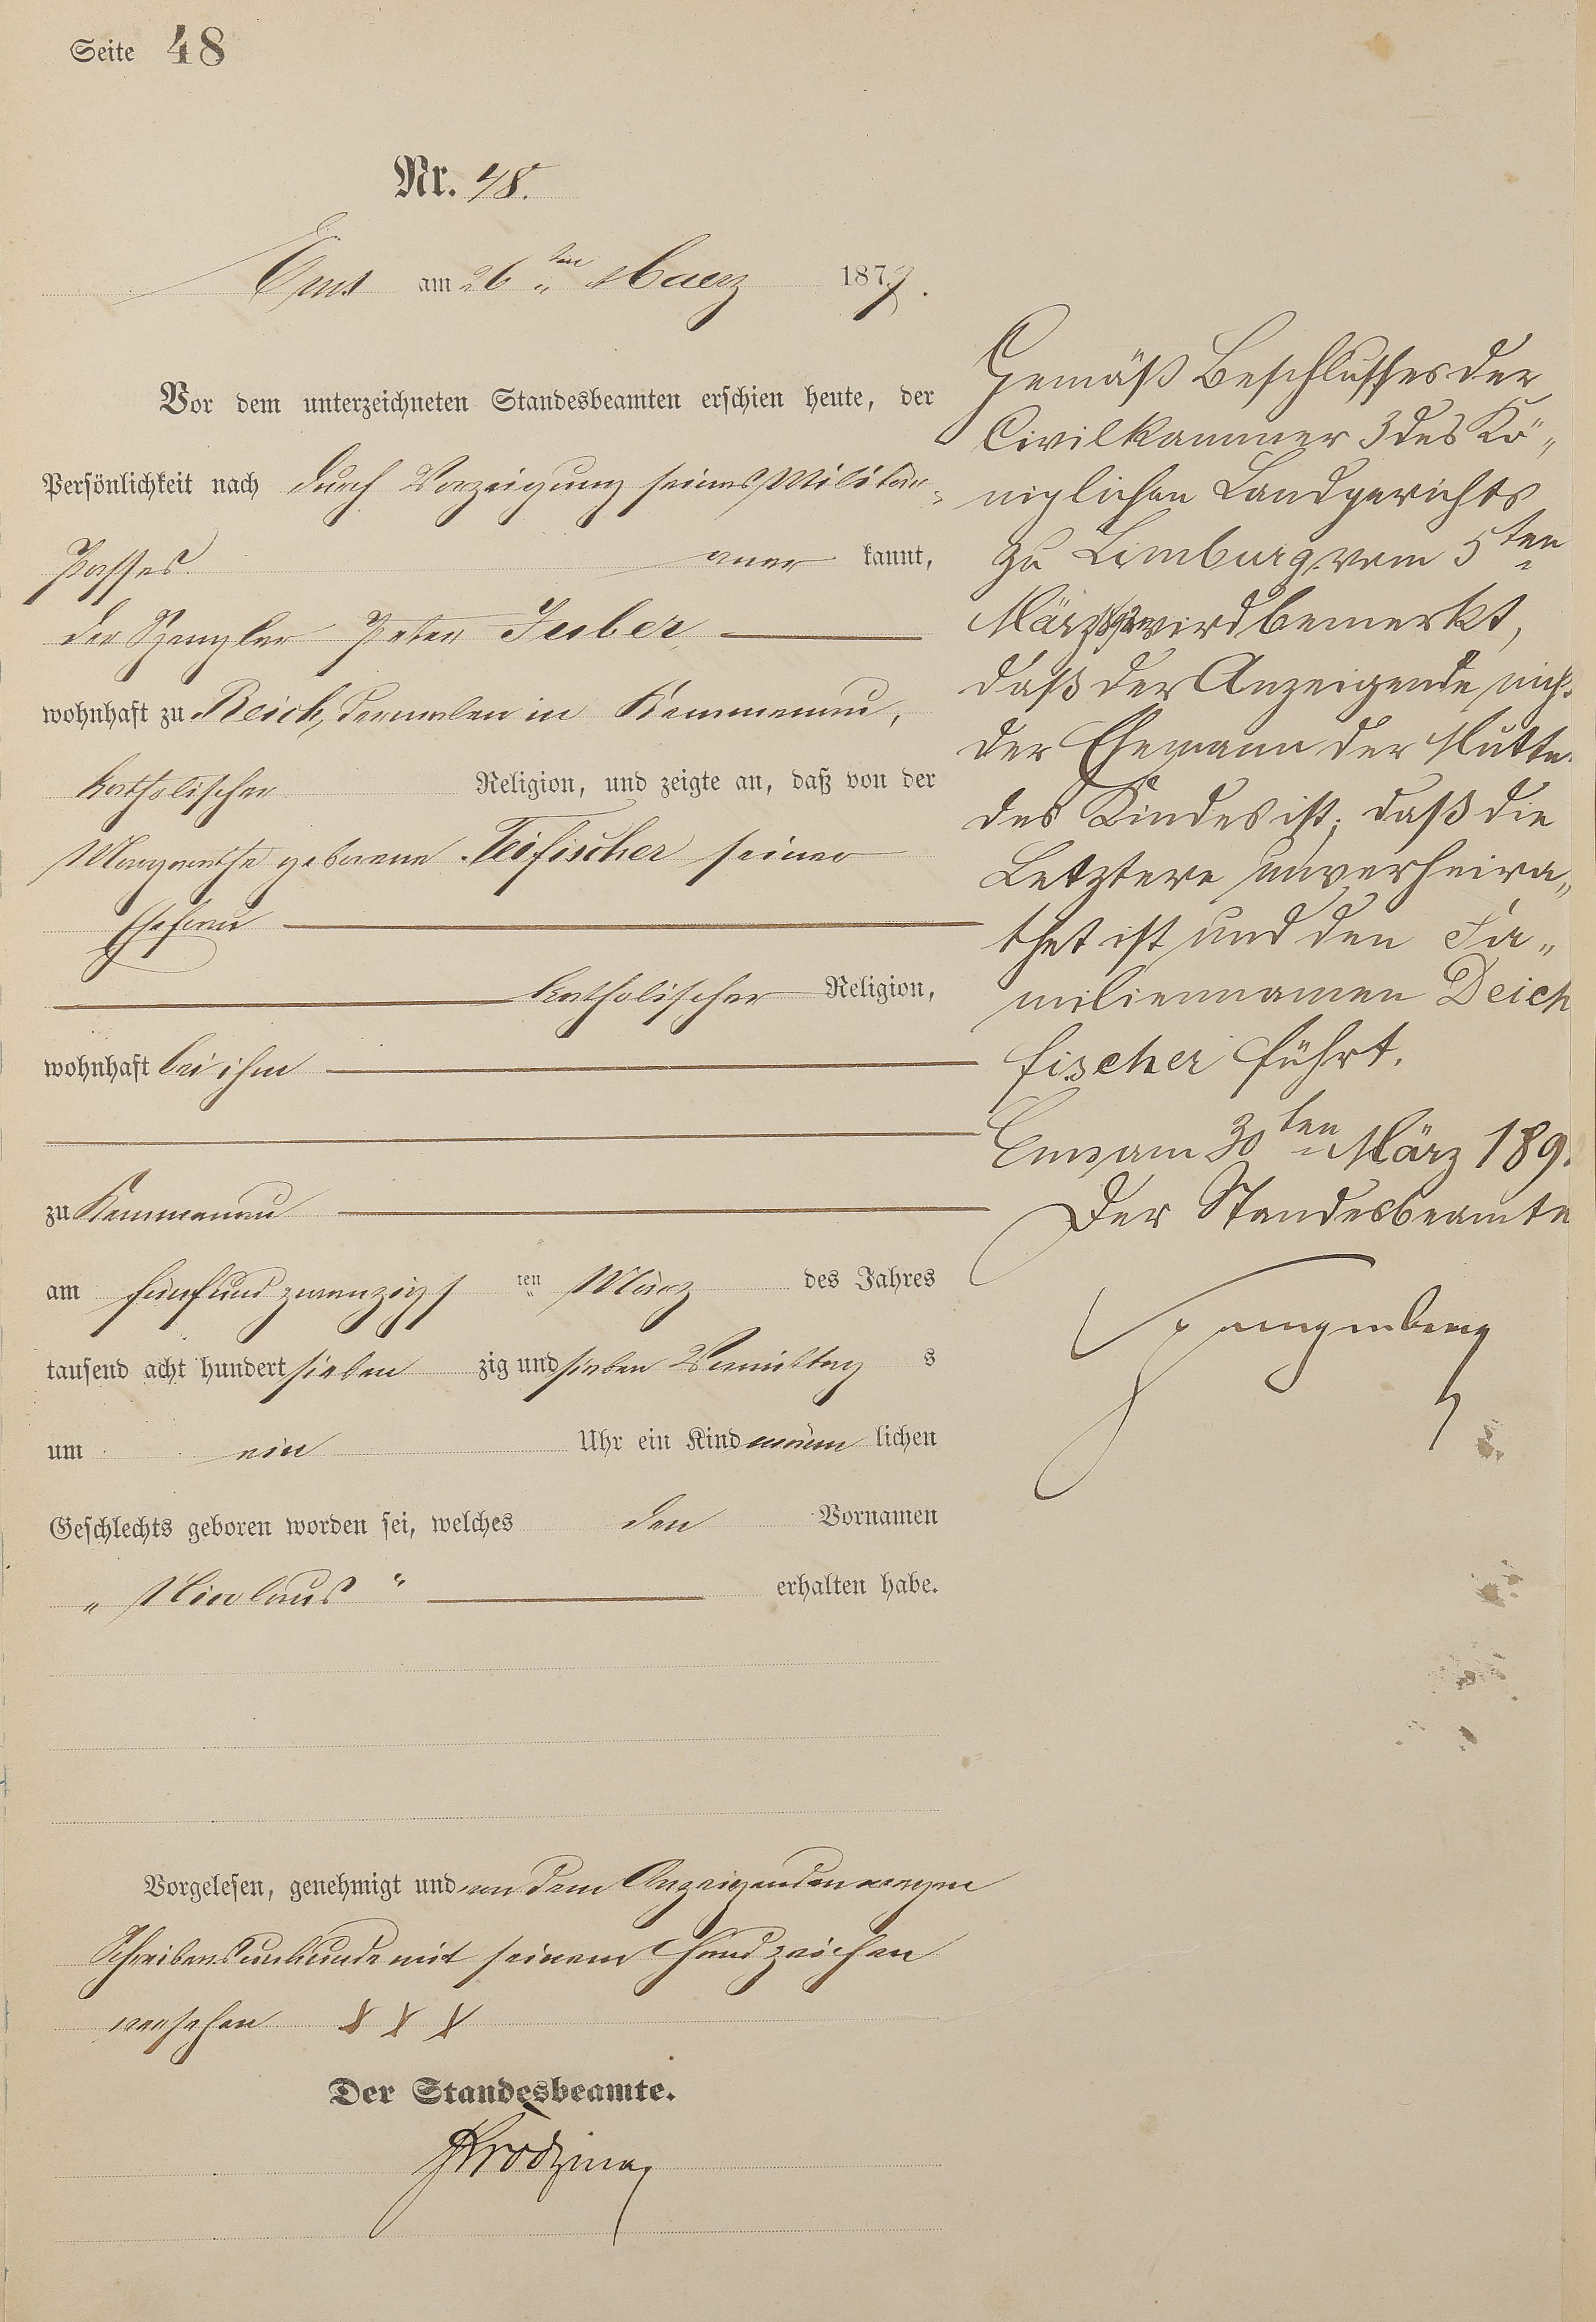 Seite 48
Nr. 48.
Ems am 26ten Maerz 1877.
Vor dem unterzeichneten Standesbeamten erschien heute, der
Persönlichkeit nach durch Vorzeigung seines Militär-
Passes aner kannt,
der Spengler Peter Juber
wohnhaft zu Reich, dermalen in Kemmenau,
katholischer Religion, und zeigte an, daß von der
Margarethe geborene Teifischer seiner
Ehefrau
katholischer Religion,
wohnhaft bei ihm
zu Kemmenau
am fünfundzwanzigs ten März des Jahres
tausend acht hundert sieben zig und sieben Vormittag s
um ein Uhr ein Kind männ lichen
Geschlechts geboren worden sei, welches den Vornamen
„Nicolaus" erhalten habe.
Vorgelesen, genehmigt und von dem Anzeigenden wegen
Schreibensunkunde mit seinem Handzeichen
versehen X X X
Der Standesbeamte.
Gemäß Beschlusses der
Civilkammer 3 des Kö„
niglichen Landgerichts
zu Limburg vom 5ten
März wird bemerkt,
daß der Anzeigende nich
der Ehemann der Mutte
des Kindes ist; daß die
Letztere unverheira„
thet ist und den Fa„
miliennamen Deich
fischer führt.
Ems am 30ten März 189
Der Standesbeamte